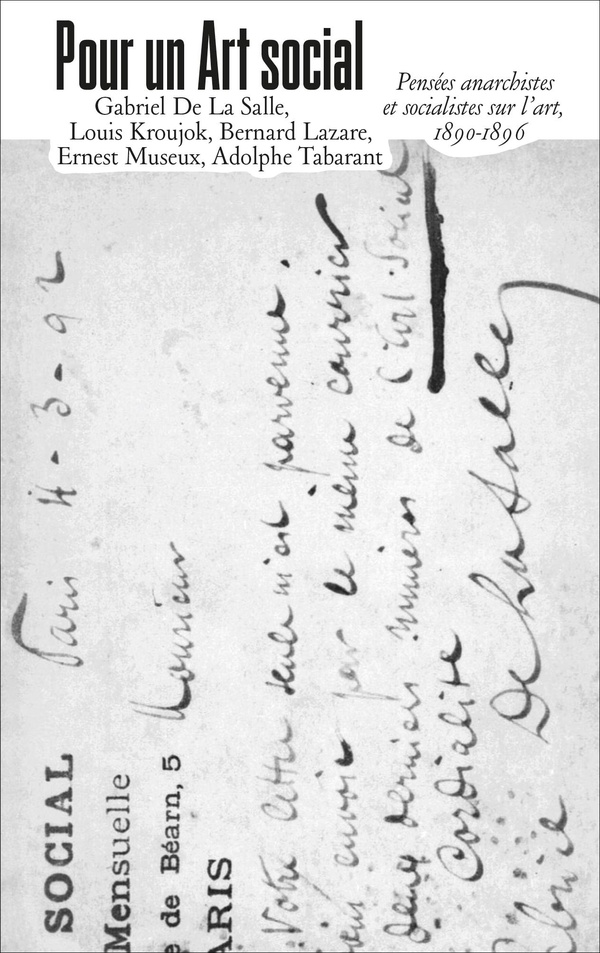 Pour un Art social
Gabriel De La Salle,
Louis Kroujok, Bernard Lazare,
Ernest Museux, Adolphe Tabarant
Pensées anarchistes
et socialistes sur l'art,
1890-1896
SOCIAL
Mensuelle
e de Béarn, 5
ARIS
Paris 4-3-92
Monsieur
Votre lettre seule m'est parvenue.
envoie par le même courrier
deux derniers numéros de l'Art Social
Cordialité
De La Salle